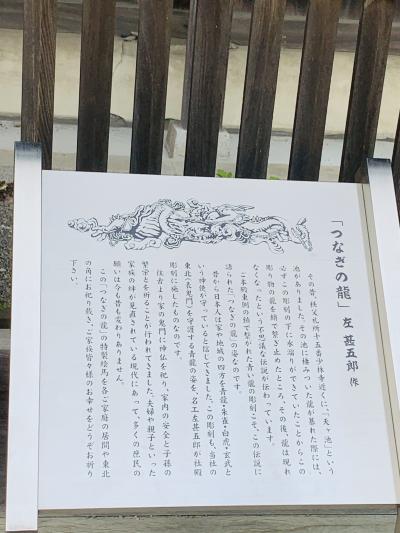 「つなぎの龍」 左 甚五郎 作
その昔、秩父札所十五番少林寺近くに「天ヶ池」という
池がありました。その池に棲みついた龍が暴れた際には、
必ずこの彫刻の下に水溜りができていたことから、この
彫り物の龍を鎖で繋ぎ止めたところ、その後、龍は現れ
なくなったという不思議な伝説が伝わっています。
ご本殿東側の鎖で繋がれた青い龍の彫刻こそ、この伝説に
語られた「つなぎの龍」の姿なのです。
昔から日本人は家や地域の四方を青龍・朱雀・白虎・玄武と
いう神使が守っていると信じてきました。この彫刻も、当社の
東北(表鬼門)を守護する青龍の姿を、名工左甚五郎が社殿
彫刻に施したものなのです。
往古より家の鬼門に神仏を祀り、家内の安全と子孫の
繁栄とを祈ることが行われてきました。夫婦や親子といった
家族の絆が見直されている現代にあって、多くの庶民の
願いは今も昔も変わりありません。
この「つなぎの龍」の特製絵馬を各ご家庭の居間や東北
の角にお祀り戴き、ご家族皆々様のお幸せをどうぞお祈り
下さい。